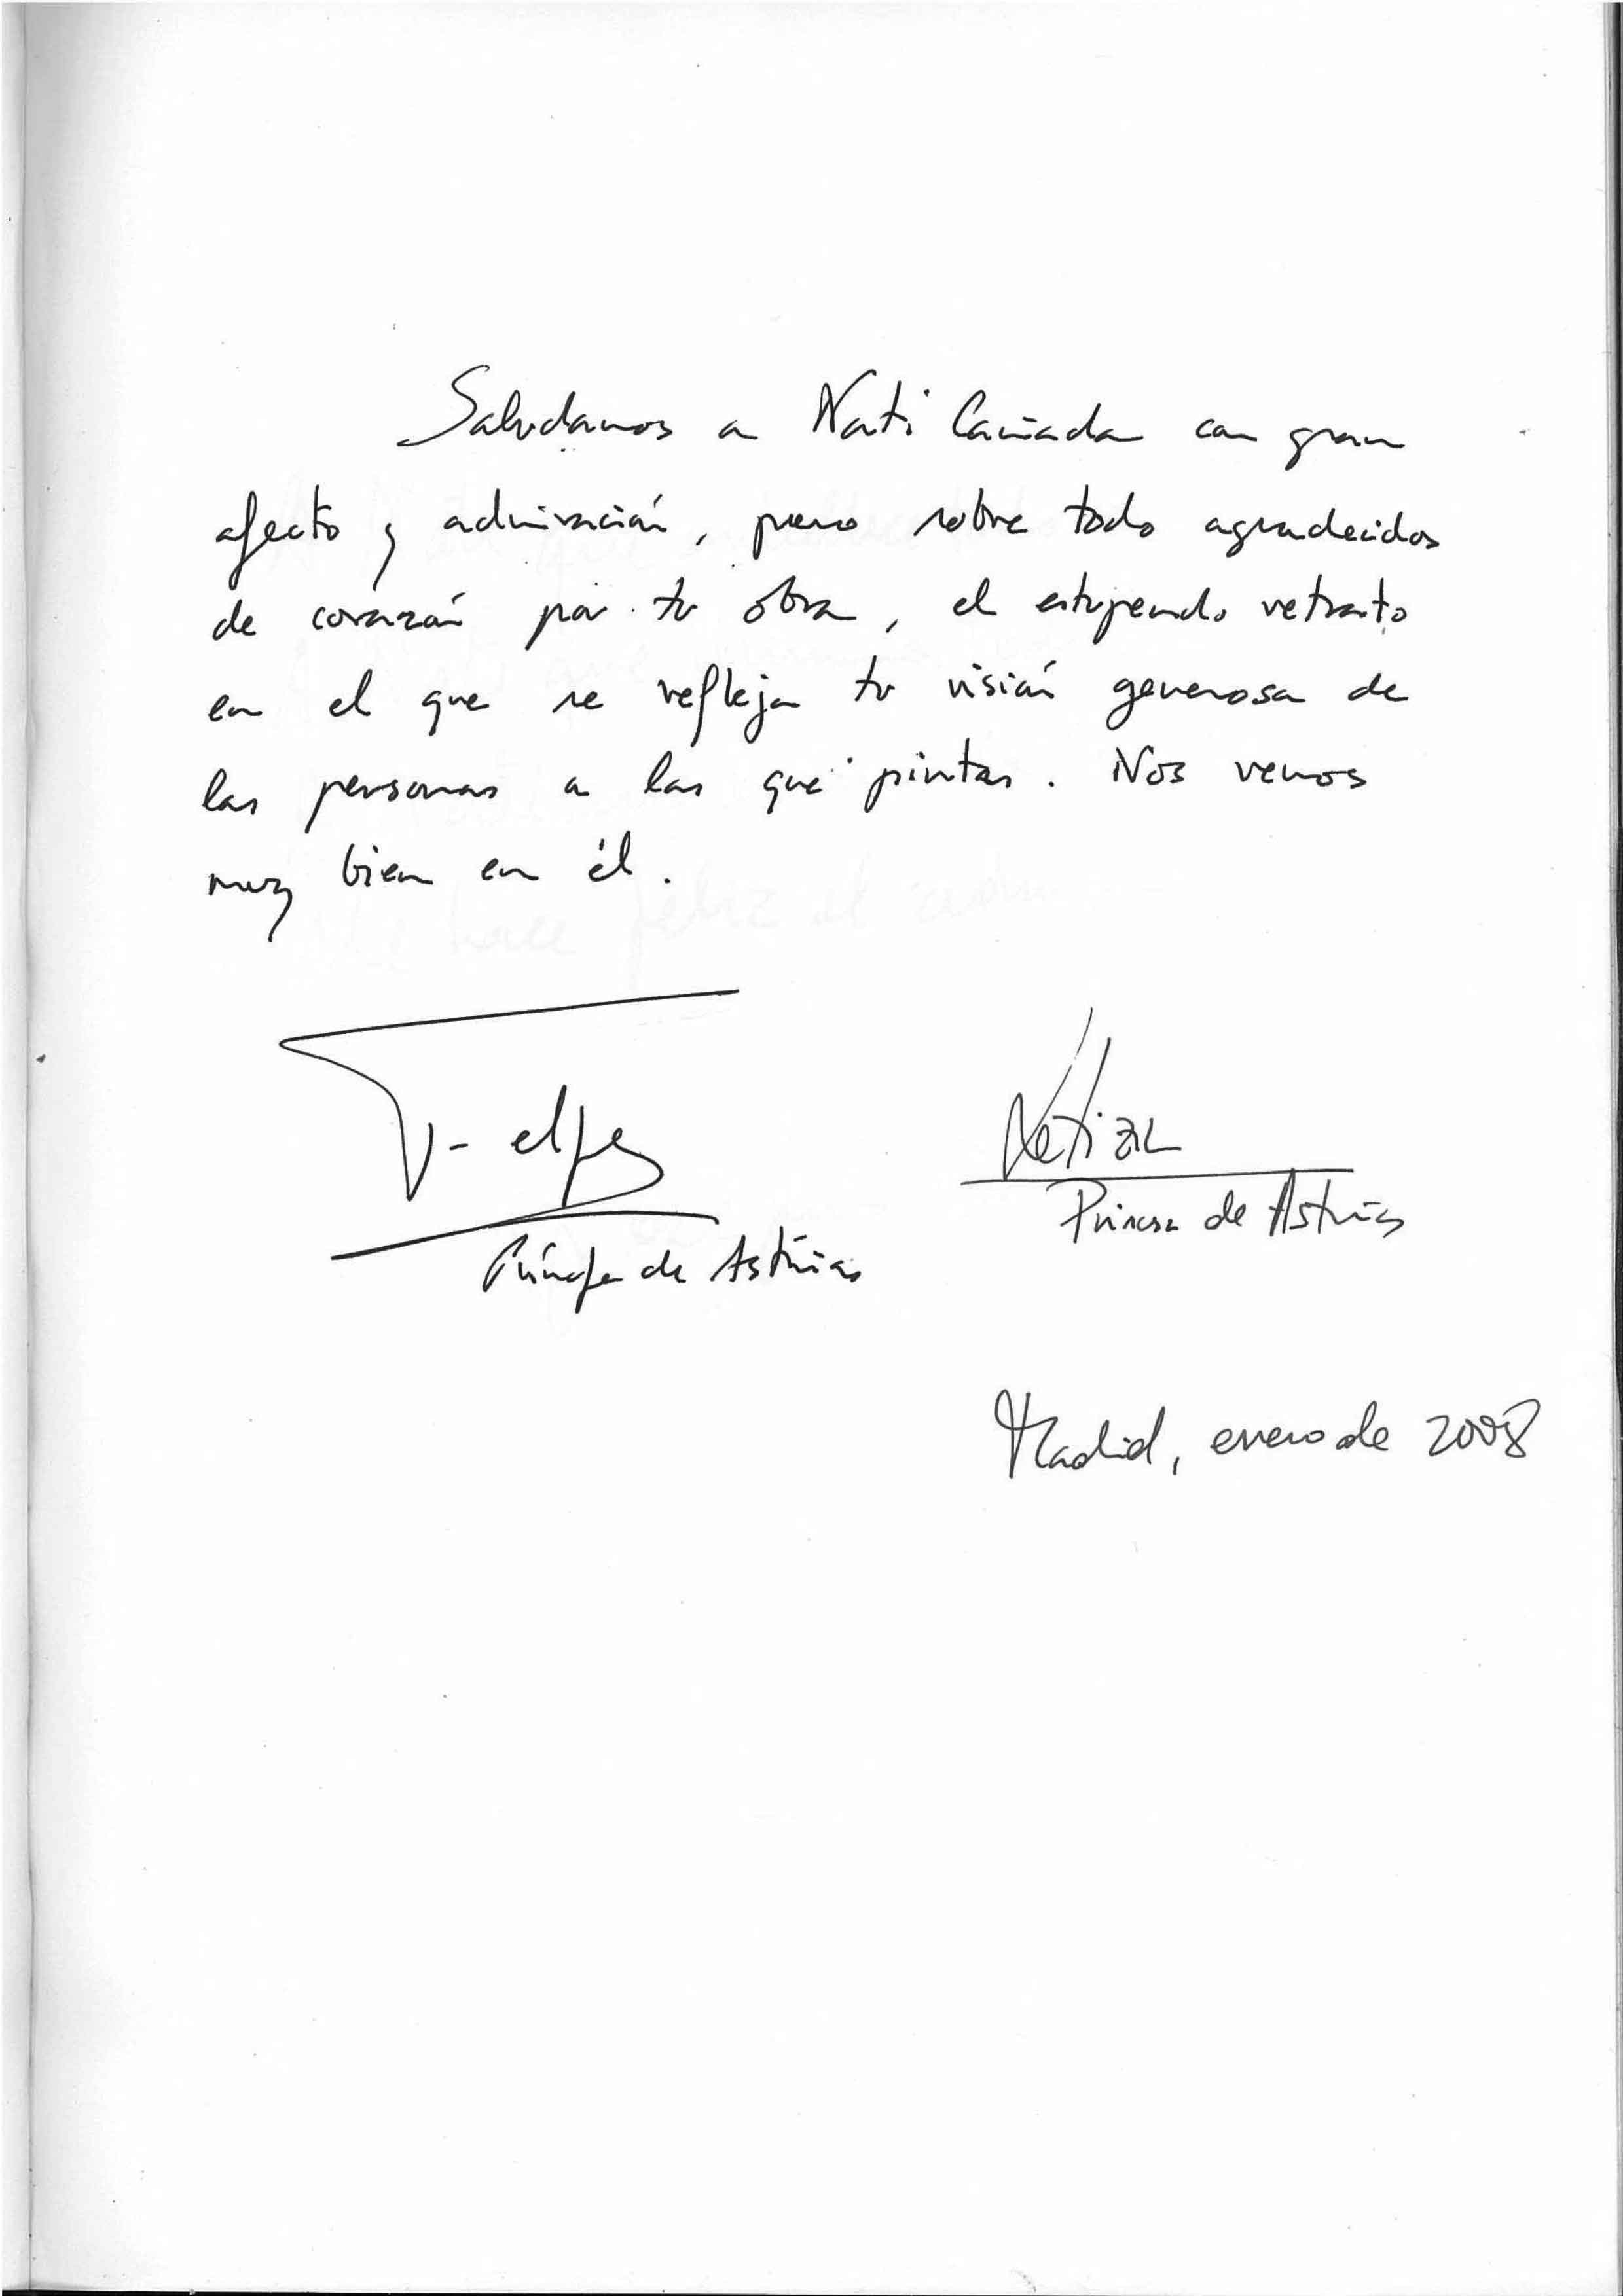 Saludamos a Nati Cañada con gran
afecto y admiración, pero sobre todo agradecidos
de corazón por tu obra, el estupendo retrato
en el que se refleja tu visión generosa de
las personas a las que pintas. Nos vemos
muy bien en él.
Felipe
Letizia
Príncipe de Asturias
Princesa de Asturias
Madrid, enero de 2008